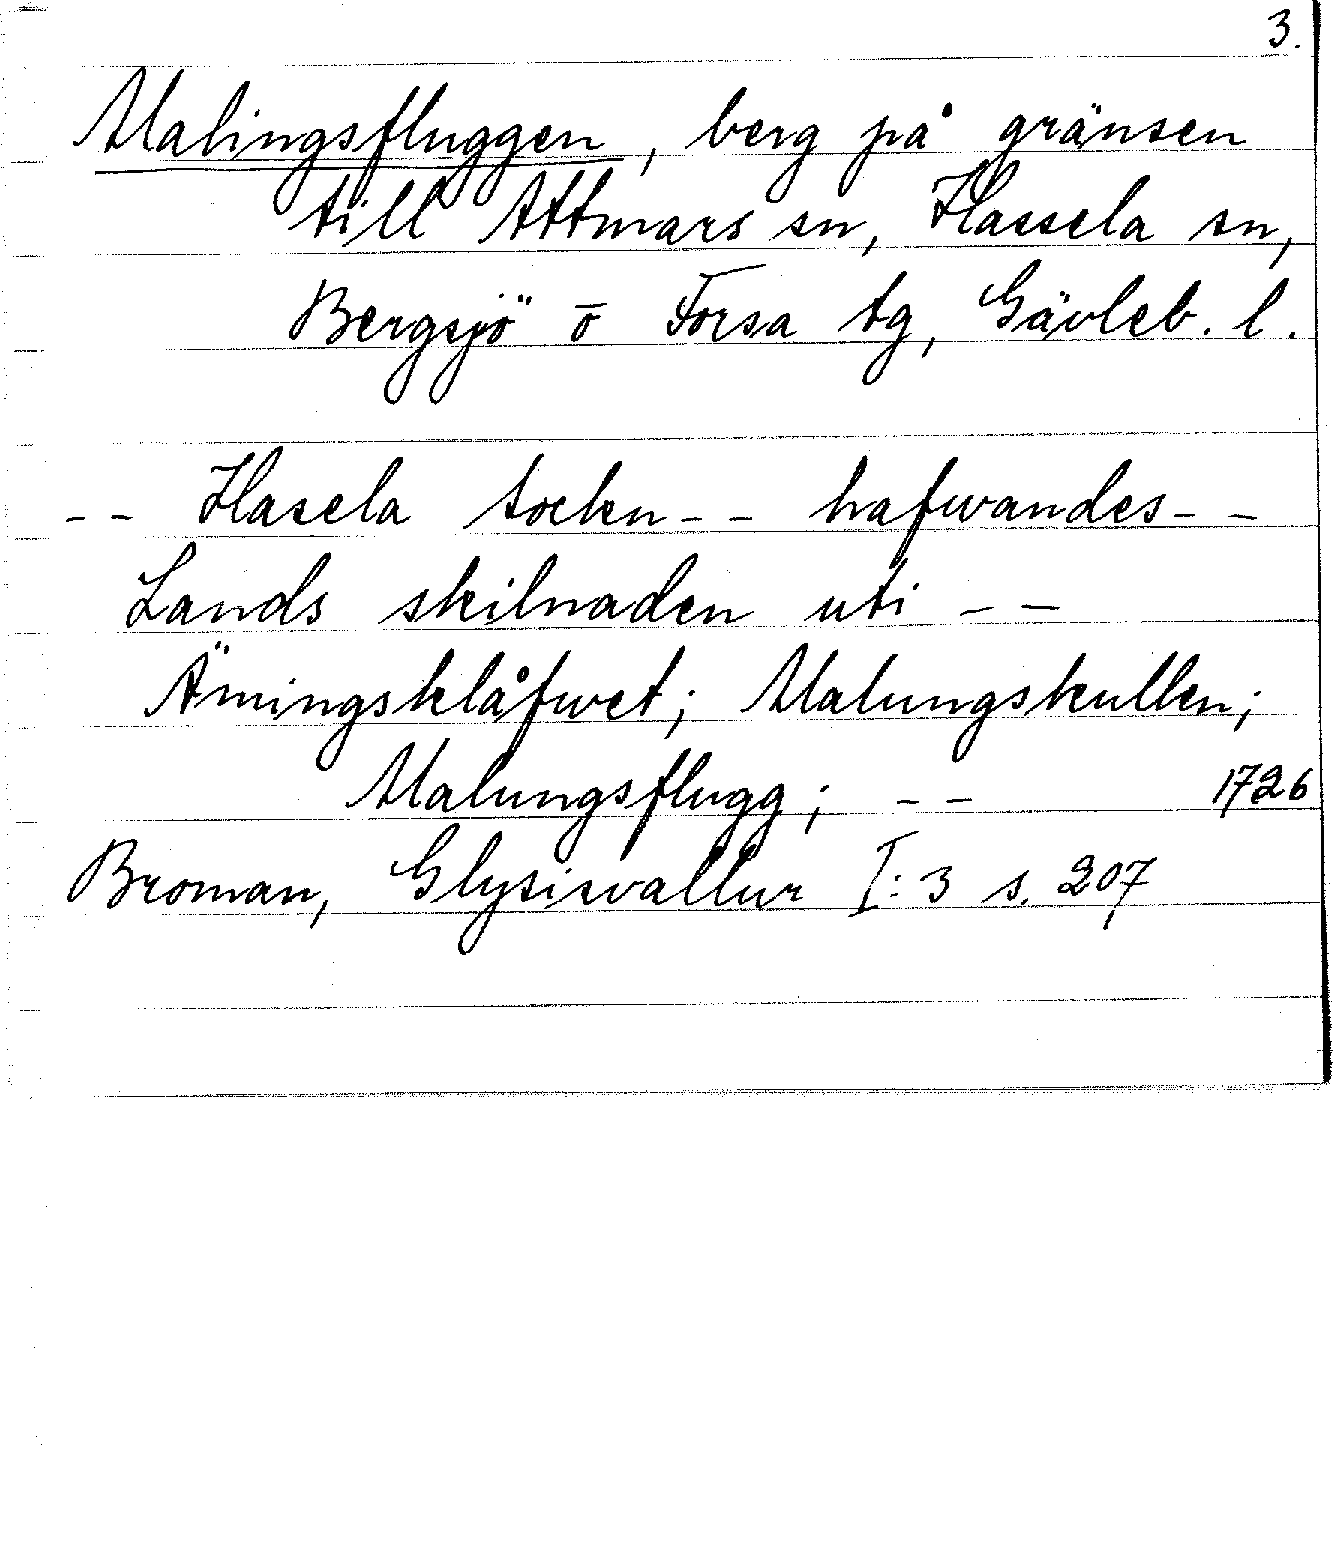 3.
Malingsfluggen, berg på gränsen
till Attmars sn, Hassela sn,
Bergsjö o Forsa tg, Gävleb. l.
-- Hasela sockn -- hafwandes --
Lands skilnaden uti --
Ämingsklåfwet; Malungskullen;
Malungsflugg; -- 1726
Broman, Glysisvallur I:3 s. 207